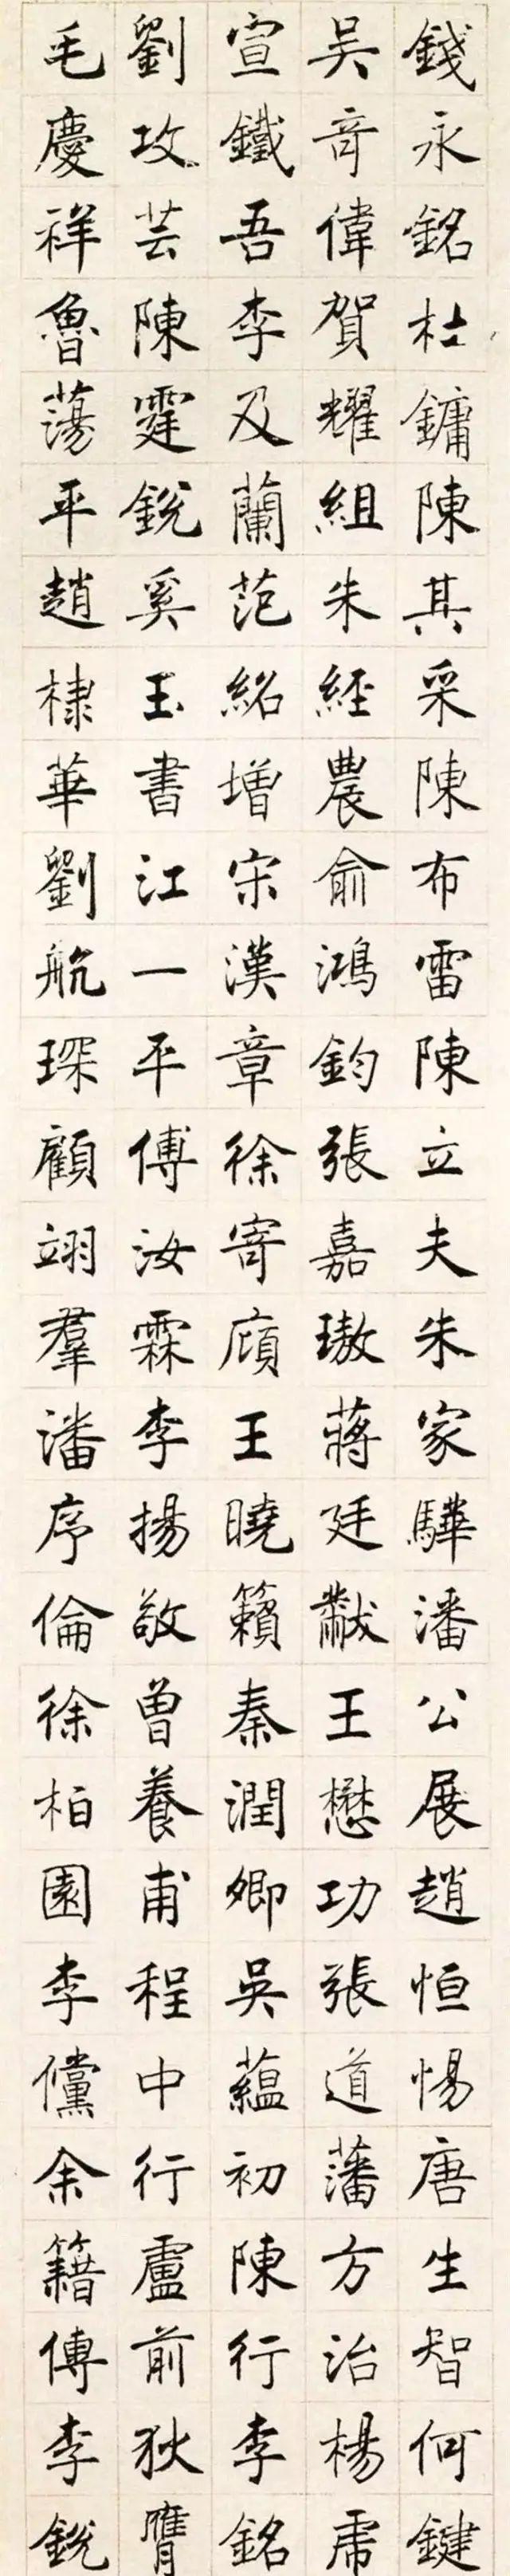 錢永銘杜鏞陳其采陳布雷陳立夫朱家驊潘公展趙恒惕唐生智何鍵
吴奇偉賀耀組朱經農俞鴻鈞張嘉璈蔣廷黻王懋功張道藩方治楊虎
宣鐵吾李及蘭范紹增宋漢章徐寄廎王曉籟秦潤卿吳蘊初陳行李銘
劉攻芸陳霆銳奚玉書江一平傅汝霖李揚敬曾養甫程中行盧前狄膺
毛慶祥魯蕩平趙棣華劉航琛顧翊羣潘序倫徐柏園李儻余籍傳李銳